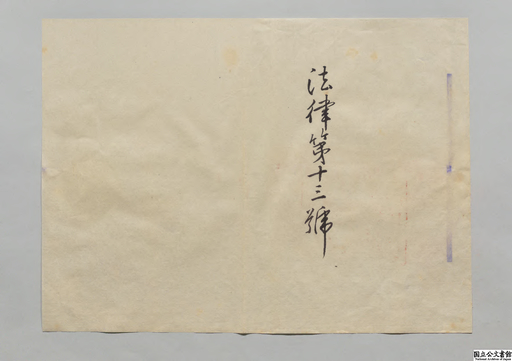 法律第十三號
国立公文書館
National Archives of Japan